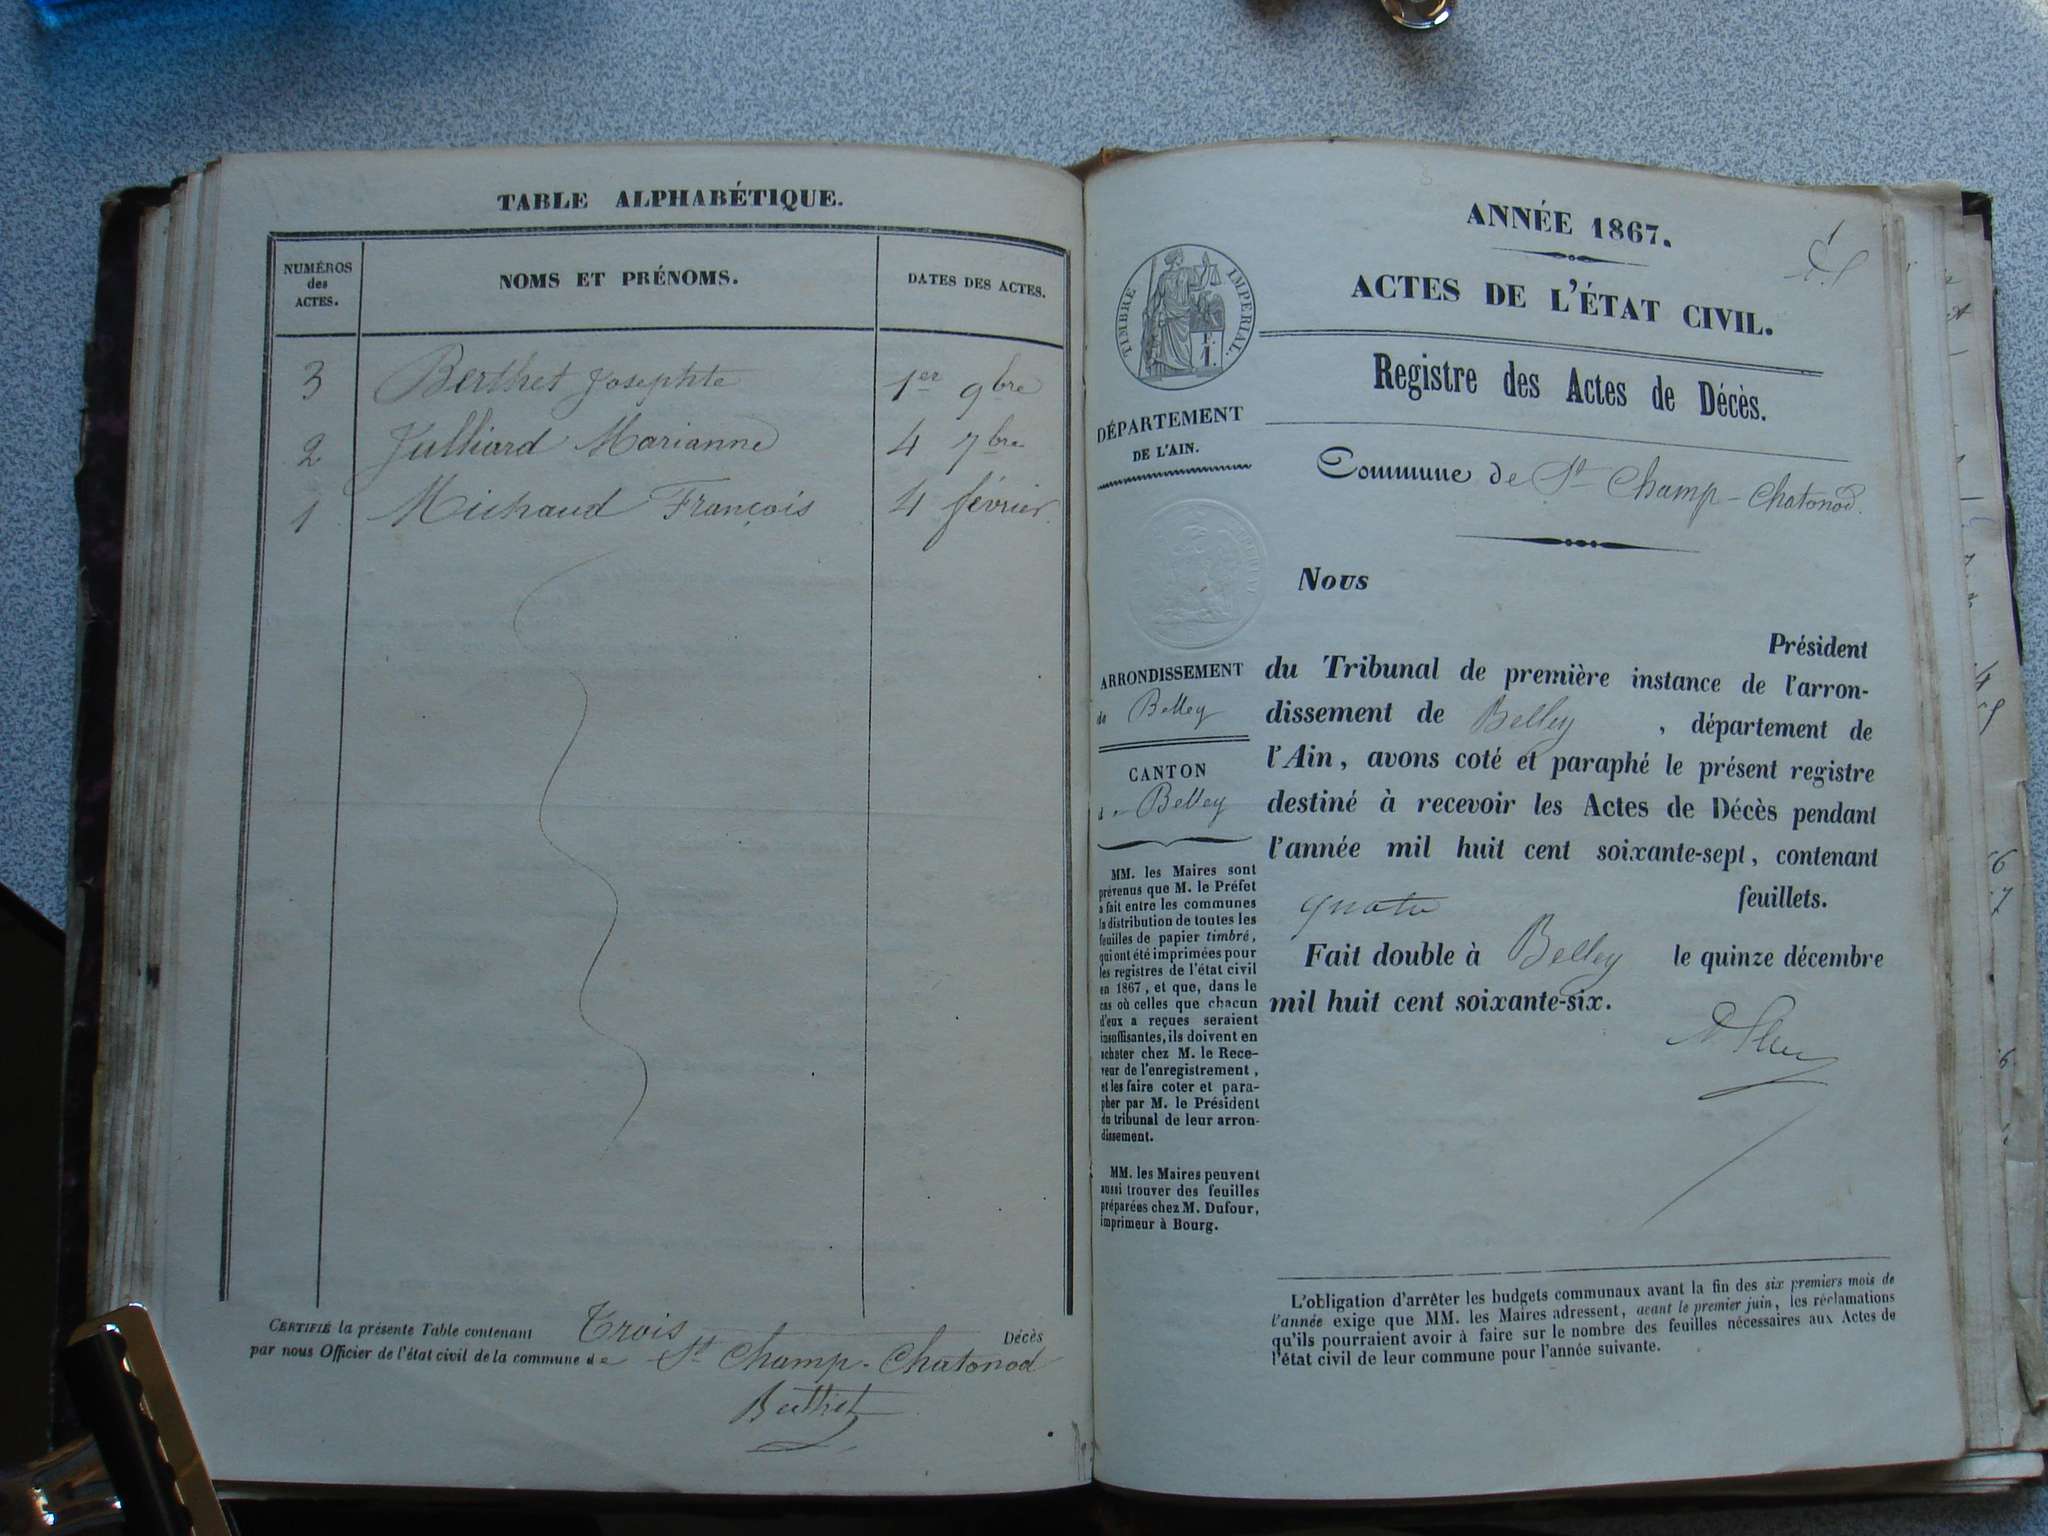 TABLE ALPHABÉTIQUE.
NUMÉROS des ACTES.
NOMS ET PRÉNOMS.
DATES DES ACTES.
3 Berthet Josephte 1er 9bre
2 Julliard Marianne 4 7bre
1 Michaud François 4 février.
CERTIFIÉ la présente Table contenant Trois Décès
par nous Officier de l'état civil de la commune de St Champ-Chatonod
Berthet
ANNÉE 1867.
ACTES DE L'ÉTAT CIVIL.
TIMBRE IMPÉRIAL.
F. 1.
Registre des Actes de Décès.
DÉPARTEMENT
DE L'AIN.
Commune de St Champ-Chatonod.
Nous
Président
du Tribunal de première instance de l'arron-
dissement de Belley, département de
l'Ain, avons coté et paraphé le présent registre
destiné à recevoir les Actes de Décès pendant
l'année mil huit cent soixante-sept, contenant
quatre feuillets.
Fait double à Belley le quinze décembre
mil huit cent soixante-six.
ARRONDISSEMENT
de Belley
CANTON
de Belley
MM. les Maires sont
prévenus que M. le Préfet
a fait entre les communes
la distribution de toutes les
feuilles de papier timbré,
qui ont été imprimées pour
les registres de l'état civil
en 1867, et que, dans le
cas où celles que chacun
d'eux a reçues seraient
insuffisantes, ils doivent en
acheter chez M. le Rece-
veur de l'enregistrement,
et les faire coter et para-
pher par M. le Président
du tribunal de leur arron-
dissement.
MM. les Maires peuvent
aussi trouver des feuilles
préparées chez M. Dufour,
imprimeur à Bourg.
L'obligation d'arrêter les budgets communaux avant la fin des six premiers mois de
l'année exige que MM. les Maires adressent, avant le premier juin, les réclamations
qu'ils pourraient avoir à faire sur le nombre des feuilles nécessaires aux Actes de
l'état civil de leur commune pour l'année suivante.